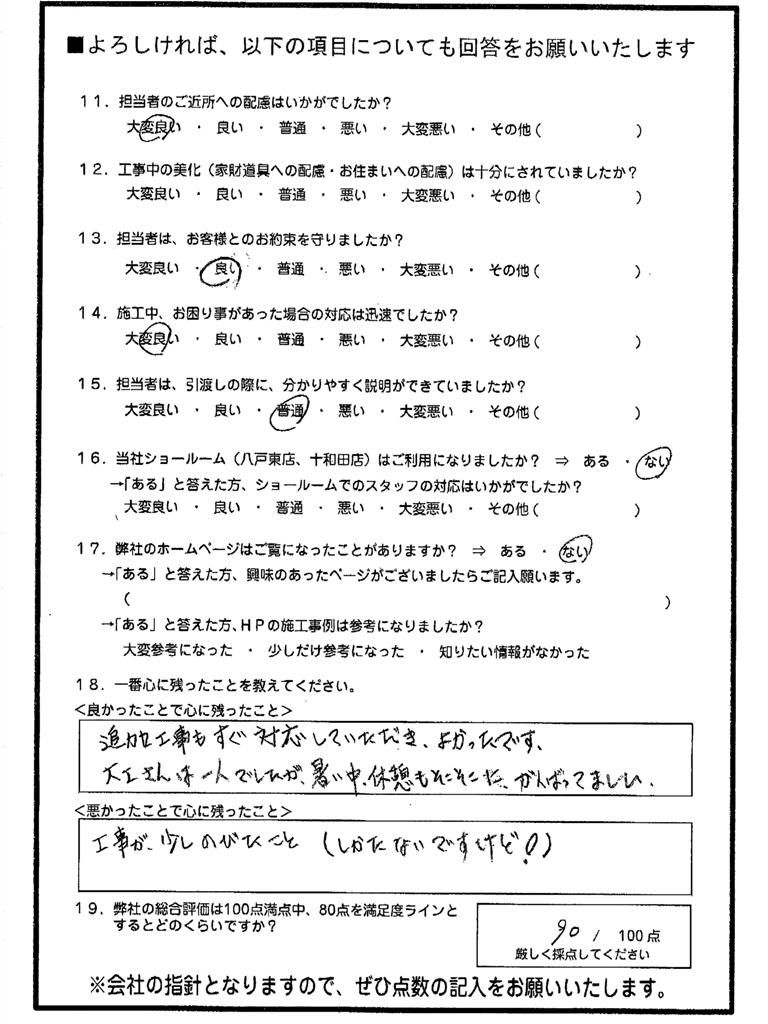 ■よろしければ、以下の項目についても回答をお願いいたします
11．担当者のご近所への配慮はいかがでしたか？
大変良い ・ 良い ・ 普通 ・ 悪い ・ 大変悪い ・ その他（ ）
12．工事中の美化（家財道具への配慮・お住まいへの配慮）は十分にされていましたか？
大変良い ・ 良い ・ 普通 ・ 悪い ・ 大変悪い ・ その他（ ）
13．担当者は、お客様とのお約束を守りましたか？
大変良い ・ 良い ・ 普通 ・ 悪い ・ 大変悪い ・ その他（ ）
14．施工中、お困り事があった場合の対応は迅速でしたか？
大変良い ・ 良い ・ 普通 ・ 悪い ・ 大変悪い ・ その他（ ）
15．担当者は、引渡しの際に、分かりやすく説明ができていましたか？
大変良い ・ 良い ・ 普通 ・ 悪い ・ 大変悪い ・ その他（ ）
16．当社ショールーム（八戸東店、十和田店）はご利用になりましたか？ ⇒ ある ・ ない
→「ある」と答えた方、ショールームでのスタッフの対応はいかがでしたか？
大変良い ・ 良い ・ 普通 ・ 悪い ・ 大変悪い ・ その他（ ）
17．弊社のホームページはご覧になったことがありますか？ ⇒ ある ・ ない
→「ある」と答えた方、興味のあったページがございましたらご記入願います。
（ ）
→「ある」と答えた方、HPの施工事例は参考になりましたか？
大変参考になった ・ 少しだけ参考になった ・ 知りたい情報がなかった
18．一番心に残ったことを教えてください。
＜良かったことで心に残ったこと＞
追加工事もすぐ対応していただき、よかったです、
大工さんは一人でしたが、暑い中、休憩もそこそこに、がんばってましい．
＜悪かったことで心に残ったこと＞
工事が、少しのびたこと （しかたないですけど！）
19．弊社の総合評価は100点満点中、80点を満足度ラインと
するとどのくらいですか？
90 / 100点
厳しく採点してください
※会社の指針となりますので、ぜひ点数の記入をお願いいたします。